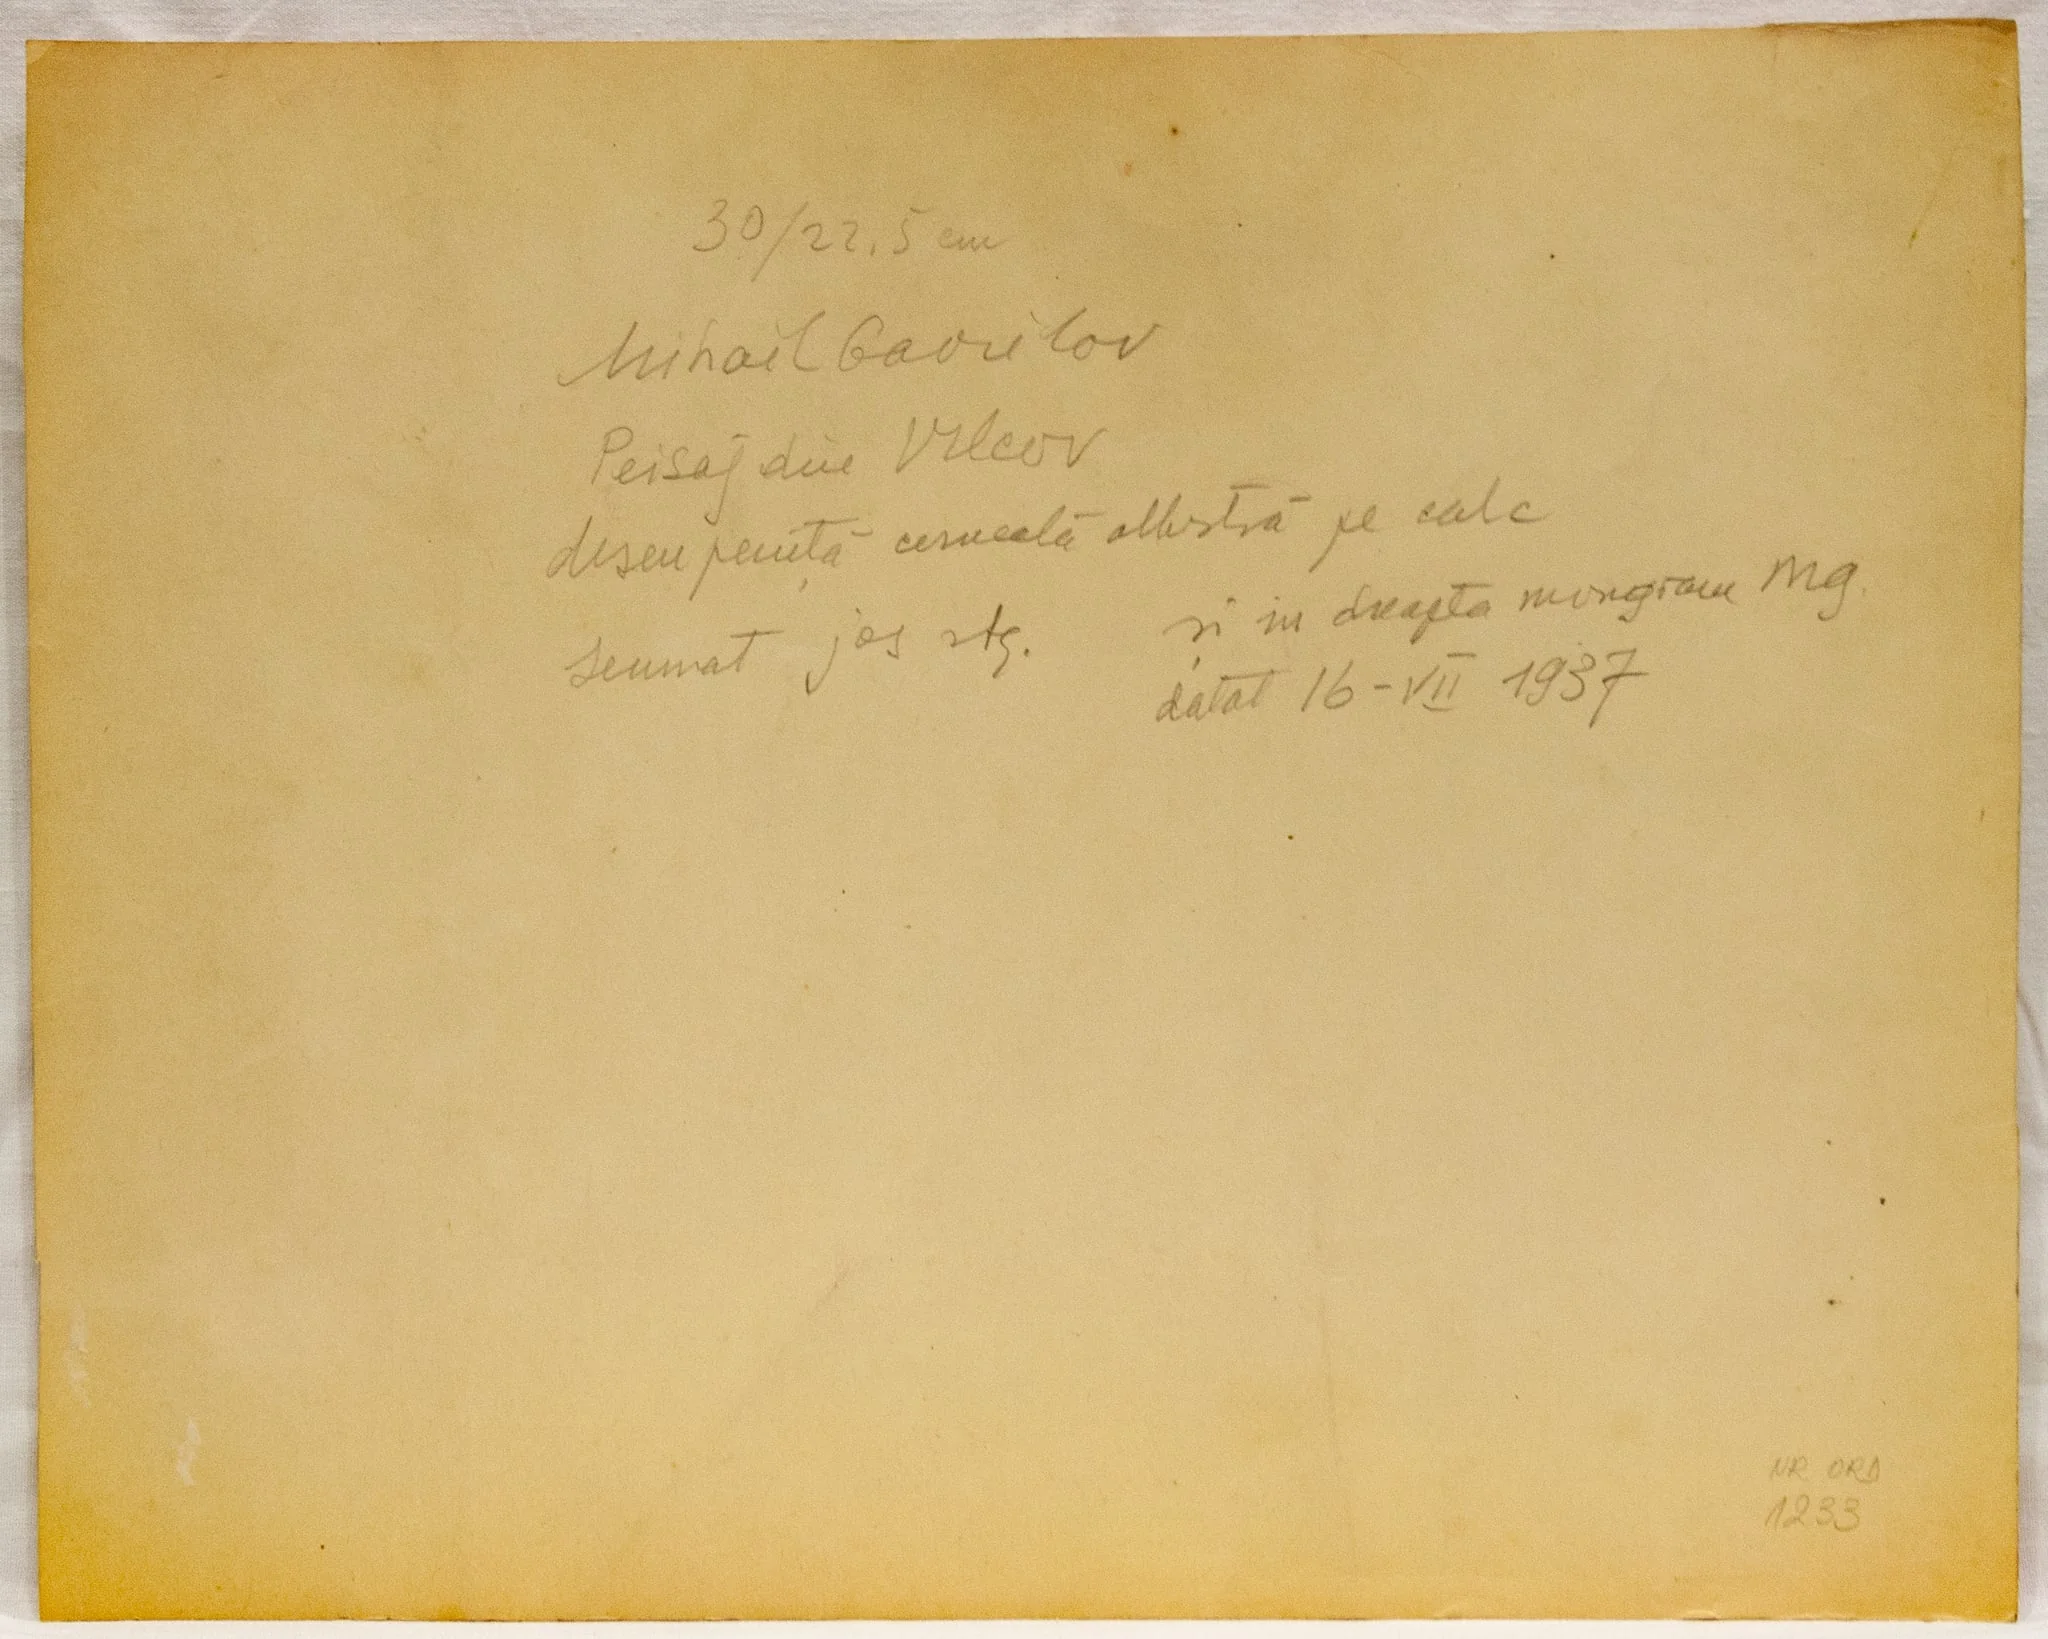 30/22.5 cm
Mihail Gavrilov
Peisaj din Vilcov
desen peniță cerneală albastră pe calc
semnat jos stg. și in dreapta mongram Mg.
datat 16-VII 1937
NR ORD
1233